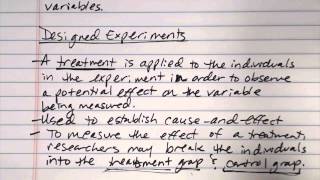 variables.
Designed Experiments
- A treatment is applied to the individuals
in the experiment in order to observe
a potential effect on the variable
being measured.
- Used to establish cause-and-effect
- To measure the effect of a treatment,
researchers may break the individuals
into the treatment group & control group.